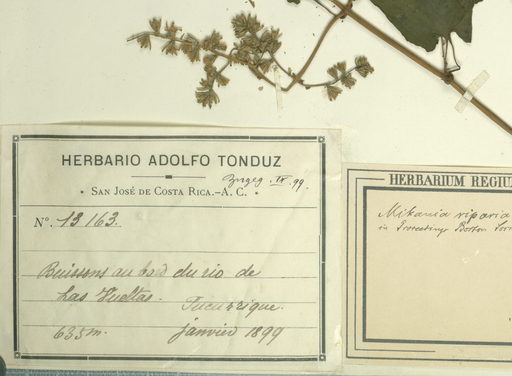 HERBARIO ADOLFO TONDUZ
SAN JOSÉ DE COSTA RICA.-A. C.
IV.99.
Nº. 13163.
Buissons au bord du rio de
Las Vueltas. Tucurrique.
635 m. janvier 1899
HERBARIUM REGIU
Mikania riparia
in Proceedings Boston